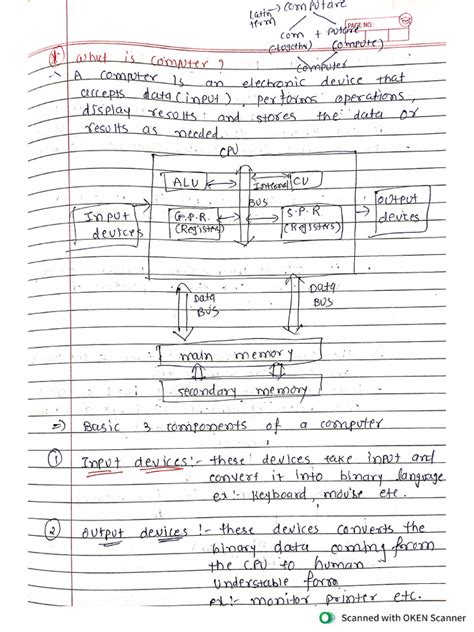 Latin → computare
term
PAGE NO.:
com + putare
(together) (compute)
computer
What is computer?
A computer is an electronic device that
accepts data (input), performs operations,
display results and stores the data or
results as needed.
CPU
ALU
Internal
CU
BUS
Input
devices
G.P.R.
(Registers)
S.P.R
(Registers)
output
devices
Data
BUS
Data
BUS
main memory
secondary memory
⇒ Basic 3 components of a computer
① Input devices:- these devices take input and
convert it into binary language
ex:- keyboard, mouse etc.
② output devices :- these devices converts the
binary data coming from
the CPU to human
understable form
ex:- monitor, printer etc.
Scanned with OKEN Scanner